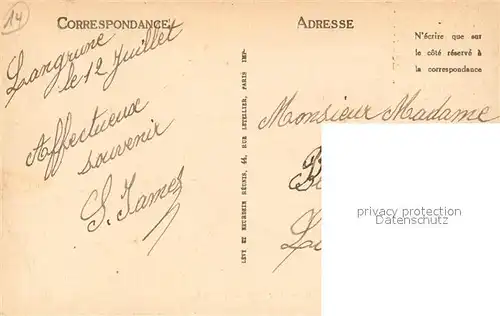 14
CORRESPONDANCE
ADRESSE
N'écrire que sur
le côté réservé à
la correspondance
Langrune
le 12 Juillet
Affectueux
souvenir
S. James
LÉVY ET NEURDEIN RÉUNIS, 44, RUE LETELLIER, PARIS IMP.
Monsieur Madame
privacy protection
AnsichtskartenHandel.de